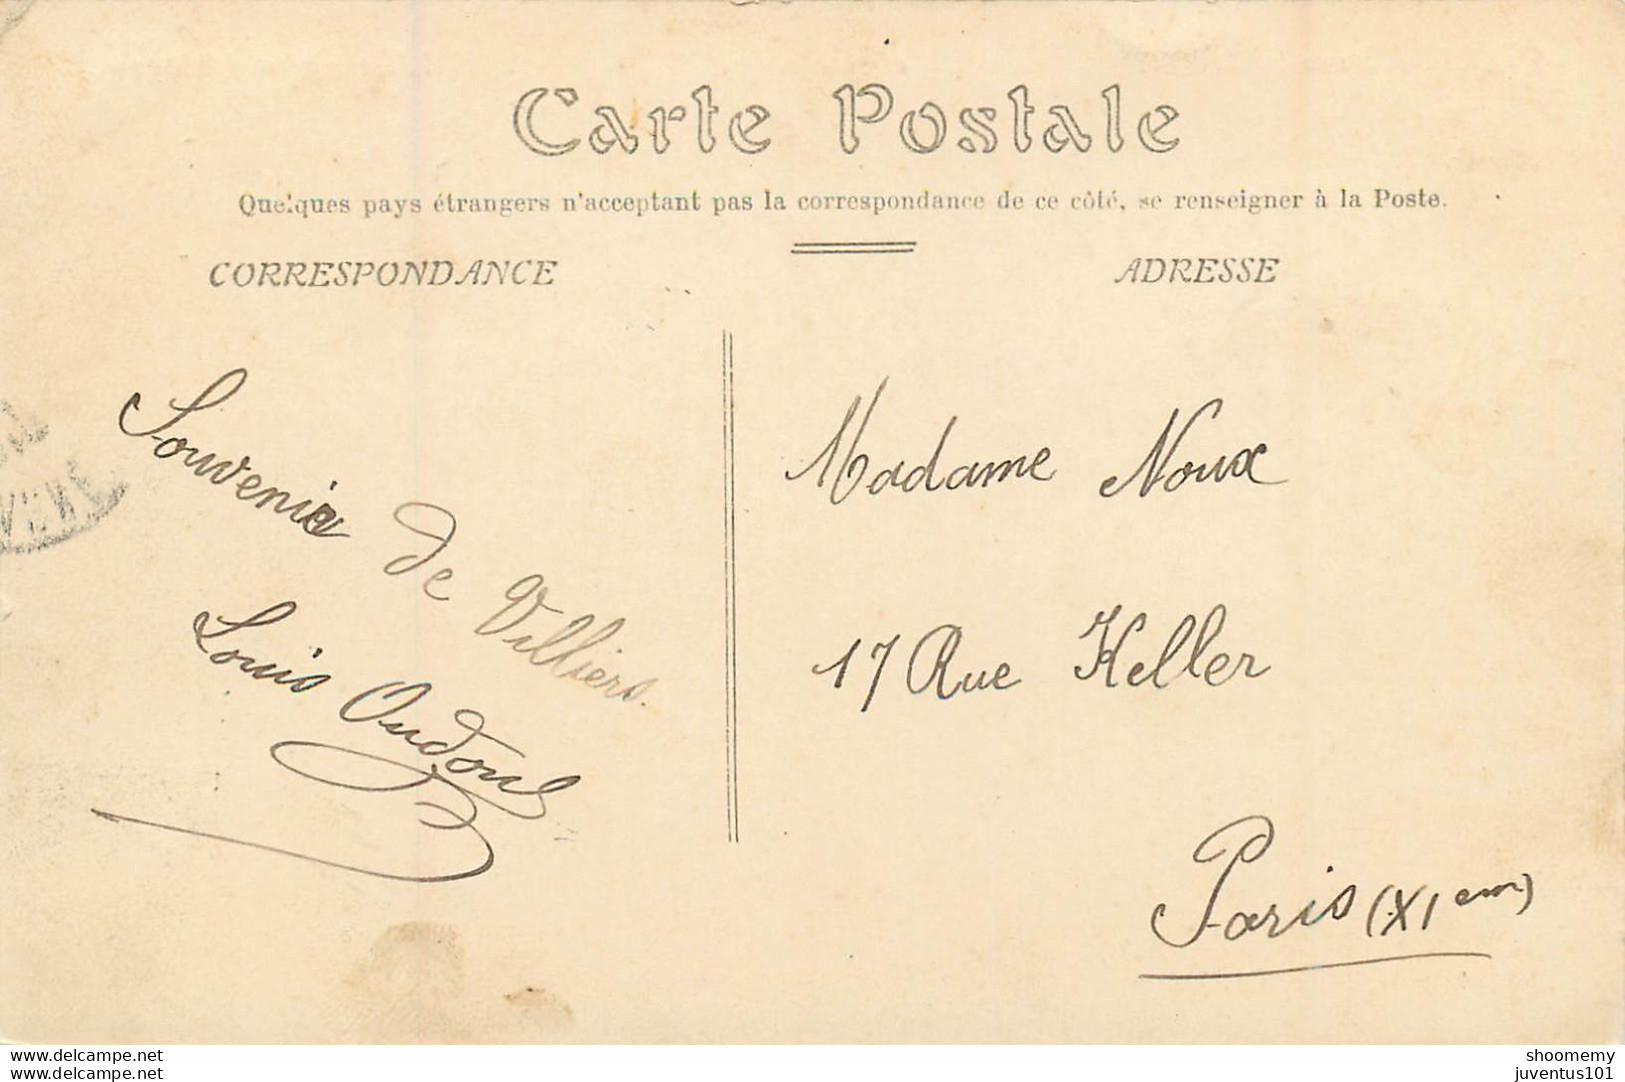 Carte Postale
Quelques pays étrangers n'acceptant pas la correspondance de ce côté, se renseigner à la Poste.
CORRESPONDANCE
ADRESSE
Souvenir
de Villiers.
Louis Oudoul
Madame Noux
17 Rue Keller
Paris (XIem)
www.delcampe.net
www.delcampe.net
shoomemy
juventus101